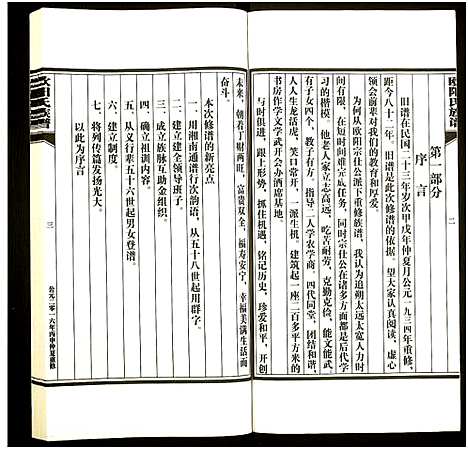 欧阳氏族谱
二
第一部分
序言
旧谱在民国二十三年岁次甲戌年仲夏月公元一九三四年重修，
距今八十二年。旧谱是此次修谱的依据。望大家认真阅读、虚心
领会前辈对我们的教育和厚爱。
为何从欧阳宗仕公派下重修族谱，我认为追朔太远太宽人力时
间有限，在短时间难完成任务，同时宗仕公在诸多方面都是后代学
习的楷模，他老人家立志高远，吃苦耐劳，克勤克俭，能文能武，
有子女四个，教子有方。指导二人学农学商。四代同堂，团结和谐，
人人生龙活虎，欣欣向荣，一派生机。建筑起一座二百多平方米的
书房作学文学武并会办酒席基地。
与时俱进，跟上形势，抓住机遇，铭记历史，珍爱和平，开创
未来，朝着丁财两旺，富贵双全，福寿安宁，幸福美满生活而
奋斗。
本次修谱的新亮点
一 用湘南通谱行次韵语，从五十八世起用群字。
二 建立健全领导班子。
三 成立族脉互助金组织。
四 确立祖训内容。
五 从义行辈五十六世起男女登谱。
六 建立制度。
七 将列传篇发扬光大。
以此为序言
欧阳氏族谱
三
公元二零一六年丙申仲夏重修